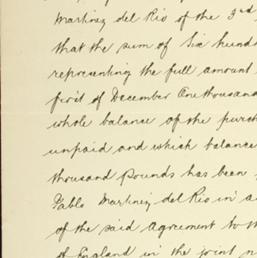 Martinez del Rio of the 3rd
that the sum of Six hund
representing the full amount
first of December One thousand
whole balance of the purch
unpaid and which balance
thousand pounds has been
Pablo Martinez del Rio in a
of the said Agreement to th
of England in the joint n